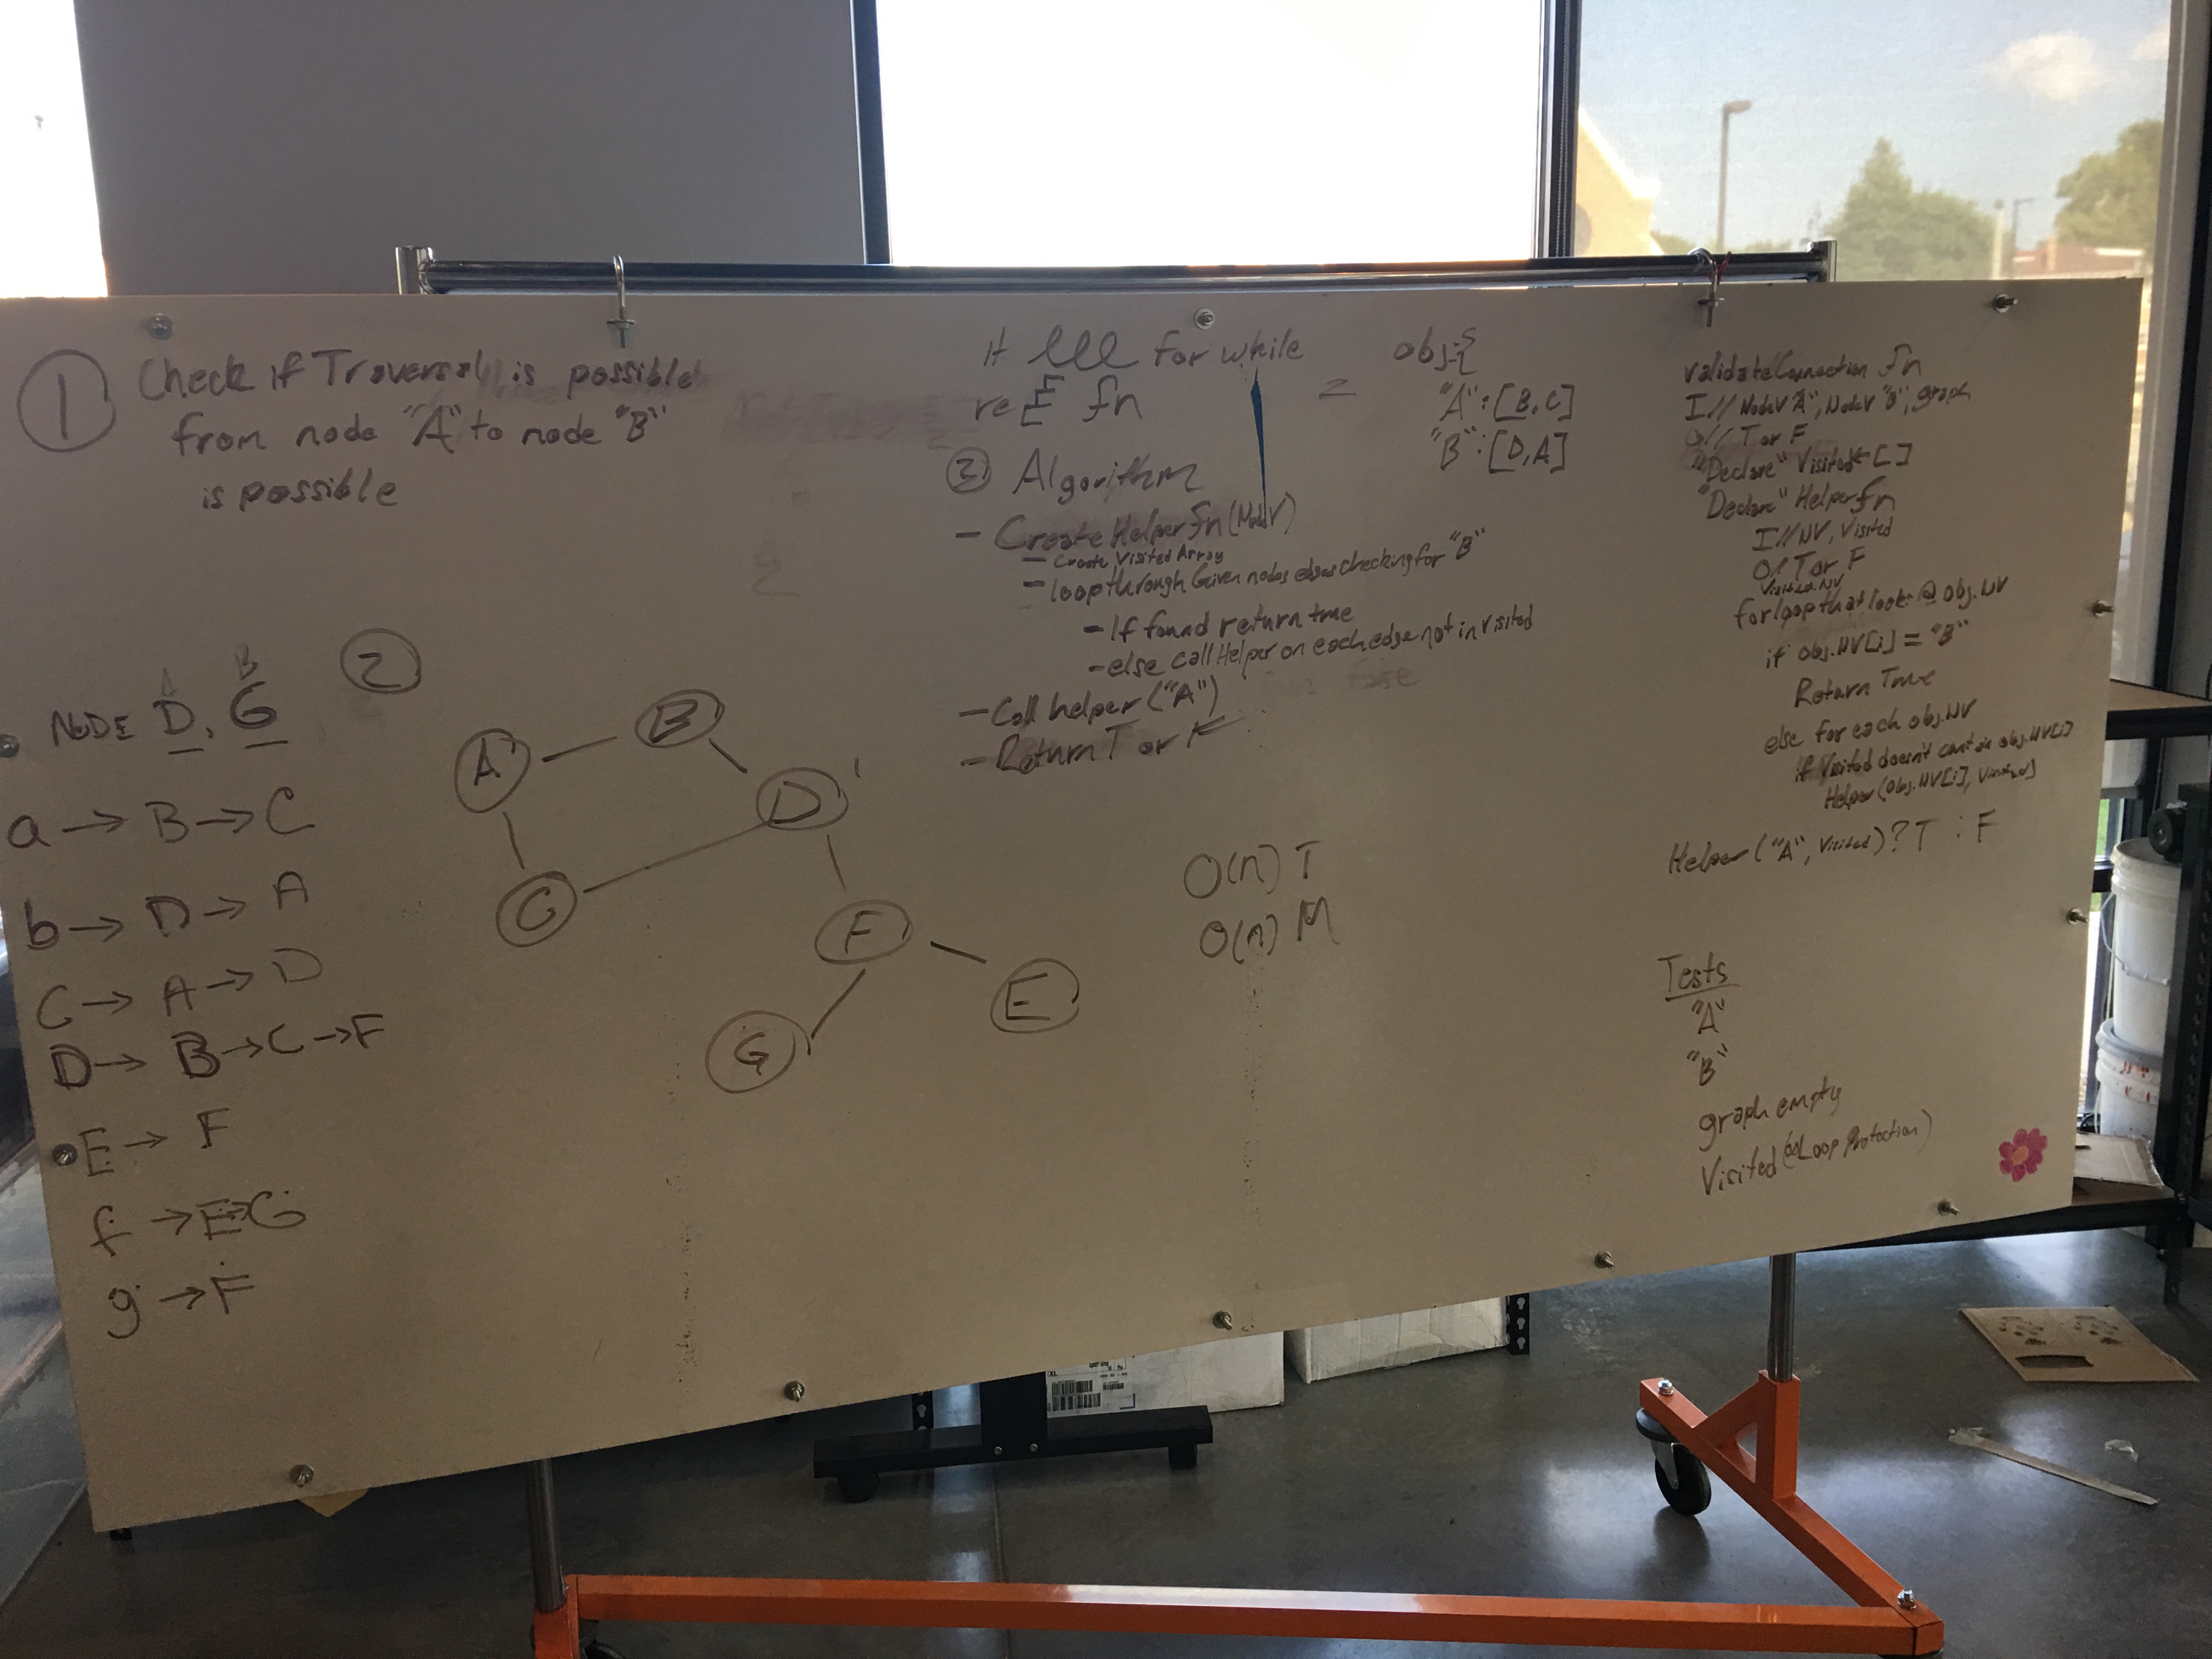 1 Check if Traversal is possible
from node "A" to node "B"
is possible
2
A B
NODE D, G
a → B → C
b → D → A
C → A → D
D → B → C → F
E → F
f → E → G
g → F
A
B
D
C
F
E
G
for while
fn
obj {
"A" : [B, C]
"B" : [D, A]
Algorithm
- Create Helper fn (Node V)
- Create Visited Array
- loop through Given nodes edges checking for "B"
- If found return true
- else call Helper on each edge not in visited
- Call helper ("A")
- Return T or F
O(n) T
O(n) M
validateConnection fn
I // NodeV "A", NodeV "B", graph
O// T or F
"Declare" Visited ← [ ]
"Declare" Helper fn
I // NV, Visited
O/ T or F
Visited.NV
for loop that looks @ obj.NV
if obj.NV[i] = "B"
Return True
else for each obj.NV
if Visited doesn't contain obj.NV[i]
Helper (obj.NV[i], Visited)
Helper ("A", Visited) ? T : F
Tests
"A"
"B"
graph empty
Visited (∞ Loop Protection)